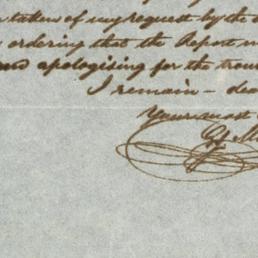 taken of my request by the
ordering that the Report
and apologising for the trou
I remain - dea
Your most